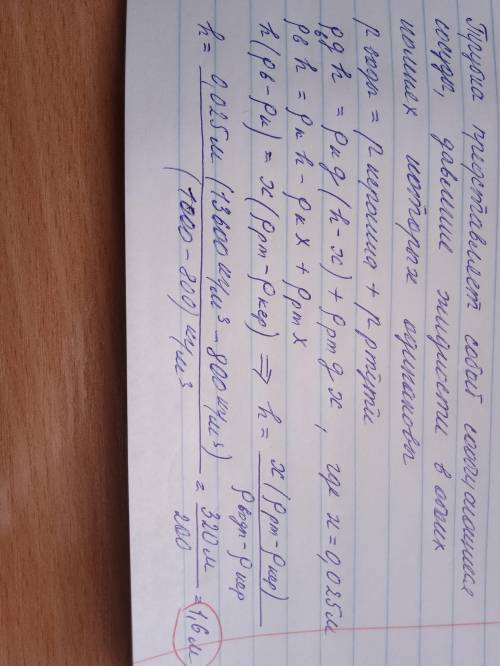 Трубка представляет собой сообщающиеся
сосуды, давление жидкости в обоих
коленах которых одинаковы
p воды = p керосина + p ртути
ρвgh = ρкg(h-x) + ρртgx, где x = 0,025м
ρвh = ρкh - ρкx + ρртx
h(ρв-ρк) = x(ρрт-ρкер) ⇒ h = x(ρрт-ρкер) / ρводы-ρкер
h = 0,025м (13600кг/м³ - 800кг/м³) / (1000-800)кг/м³ = 320м / 200 = 1,6м